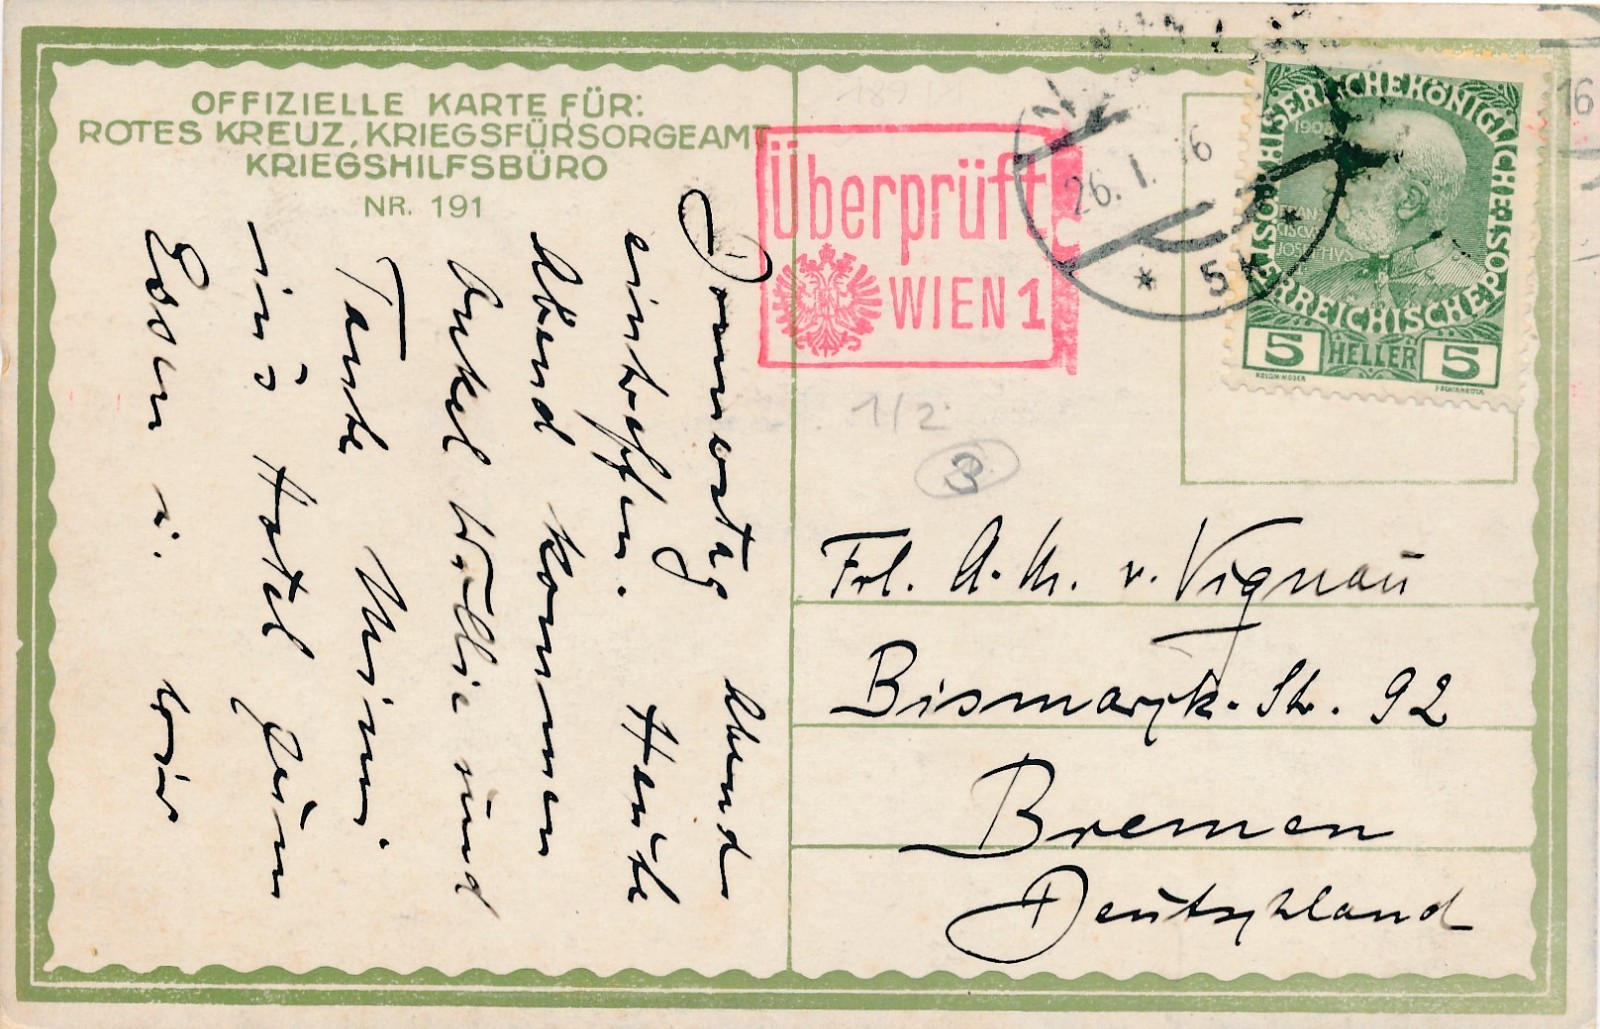 OFFIZIELLE KARTE FÜR:
ROTES KREUZ, KRIEGSFÜRSORGEAMT
KRIEGSHILFSBÜRO
NR. 191
Donnerstag Abend
eintreffen. Heute
Abend kommen
Onkel Willie und
Tante Mimi
ins Hotel zum
Essen u. wir
Überprüft
WIEN 1
26. I. 16
* 5k *
KAISERLICHE KÖNIGLICHE ÖSTERREICHISCHE POST
1908
FRAN
CISCVS
JOSEPHVS
5 HELLER 5
16
1/2
3
Frl. A. M. v. Vignau
Bismarck-Str. 92
Bremen
Deutschland